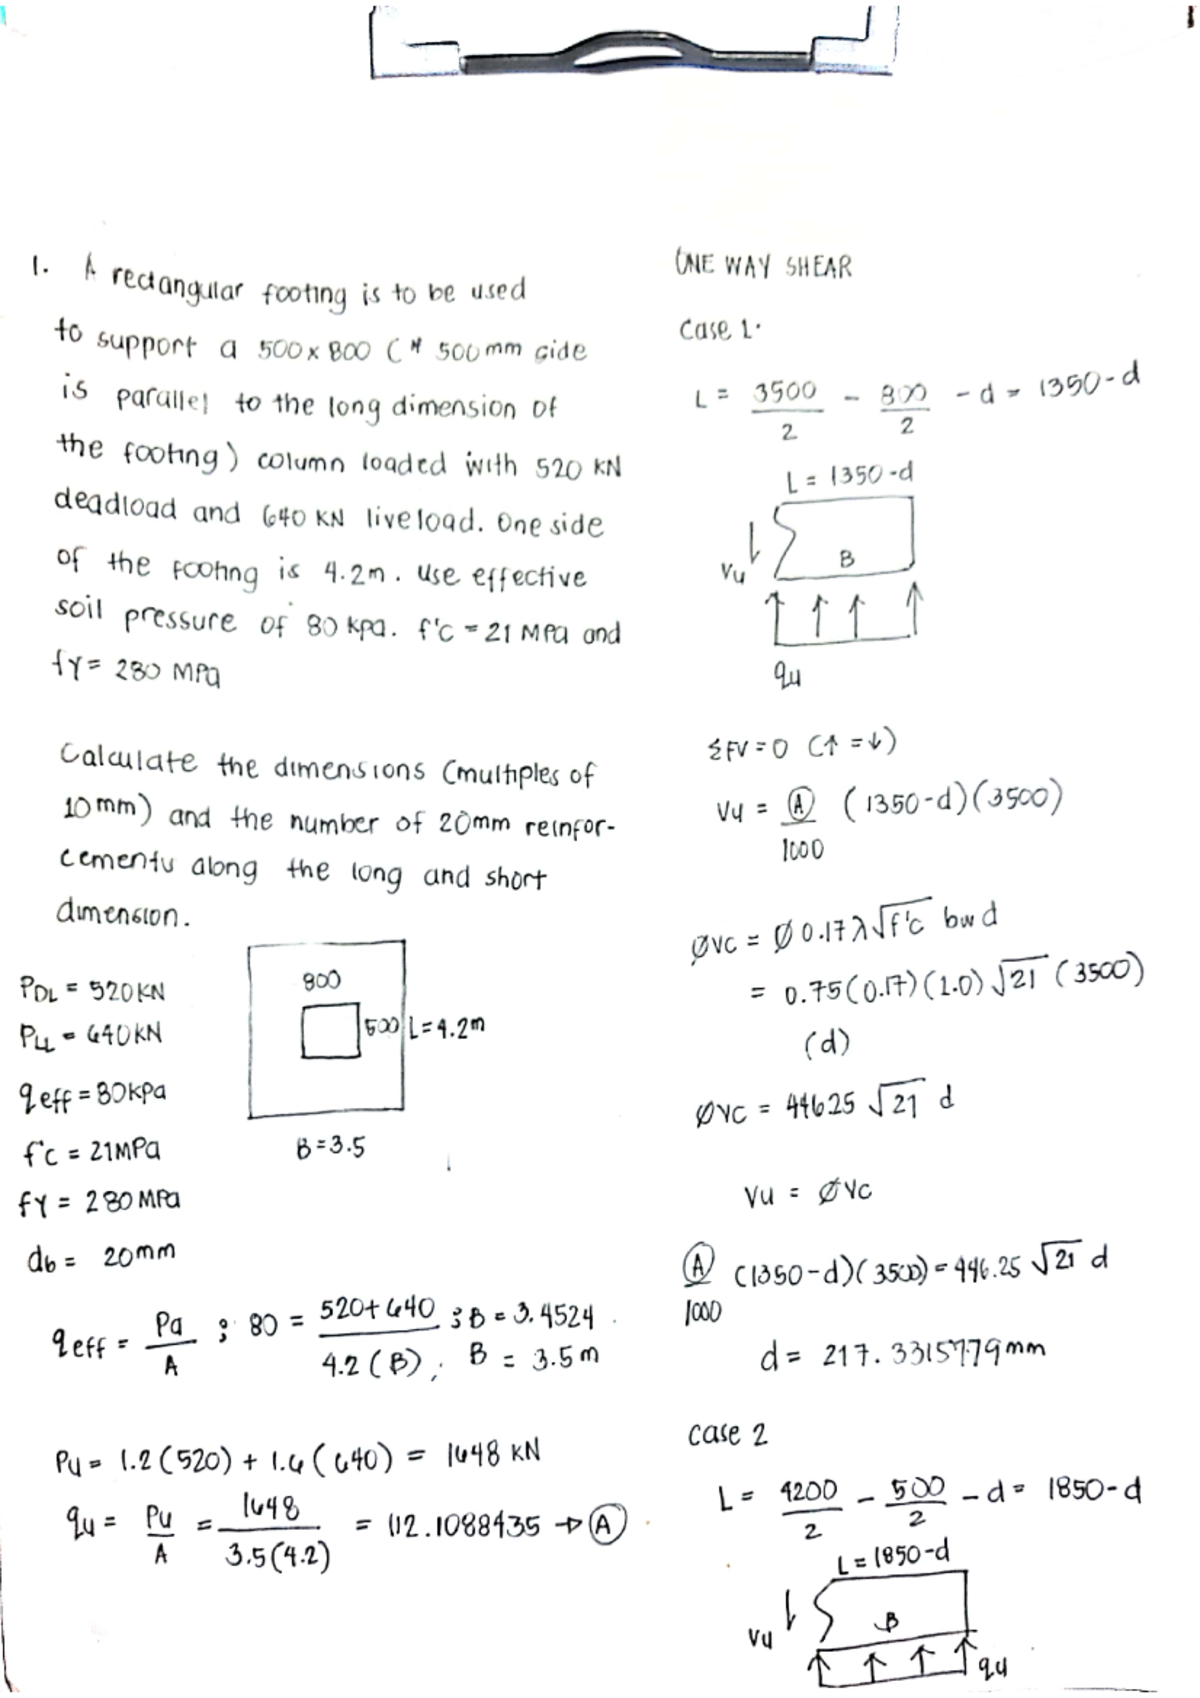 1. A rectangular footing is to be used
to support a 500 x 800 ( * 500 mm side
is parallel to the long dimension of
the footing) column loaded with 520 KN
deadload and 640 KN live load. One side
of the footing is 4.2m. Use effective
soil pressure of 80 kpa. f'c = 21 MPa and
fy = 280 MPa
Calculate the dimensions (multiples of
10mm) and the number of 20mm reinfor-
cements along the long and short
dimension.
PDL = 520KN
PLL = 640KN
qeff = 80kPa
f'c = 21MPa
fy = 280 MPa
db = 20mm
800
500
L = 4.2m
B = 3.5
qeff = Pa/A ; 80 = 520+640 / 4.2(B) ; B = 3.4524
B = 3.5m
Pu = 1.2(520) + 1.6(640) = 1648 KN
qu = Pu/A = 1648 / 3.5(4.2) = 112.1088435 → Ⓐ
ONE WAY SHEAR
Case 1.
L = 3500/2 - 800/2 - d = 1350-d
L = 1350-d
Vu
B
qu
ΣFV = 0 (↑ = ↓)
Vu = Ⓐ/1000 (1350-d)(3500)
ØVC = Ø 0.17 λ √f'c bw d
= 0.75(0.17)(1.0) √21 (3500)
(d)
ØVC = 446.25 √21 d
Vu = ØVC
Ⓐ/1000 (1350-d)(3500) = 446.25 √21 d
d = 217.3315779mm
case 2
L = 4200/2 - 500/2 - d = 1850-d
L = 1850-d
Vu
B
qu